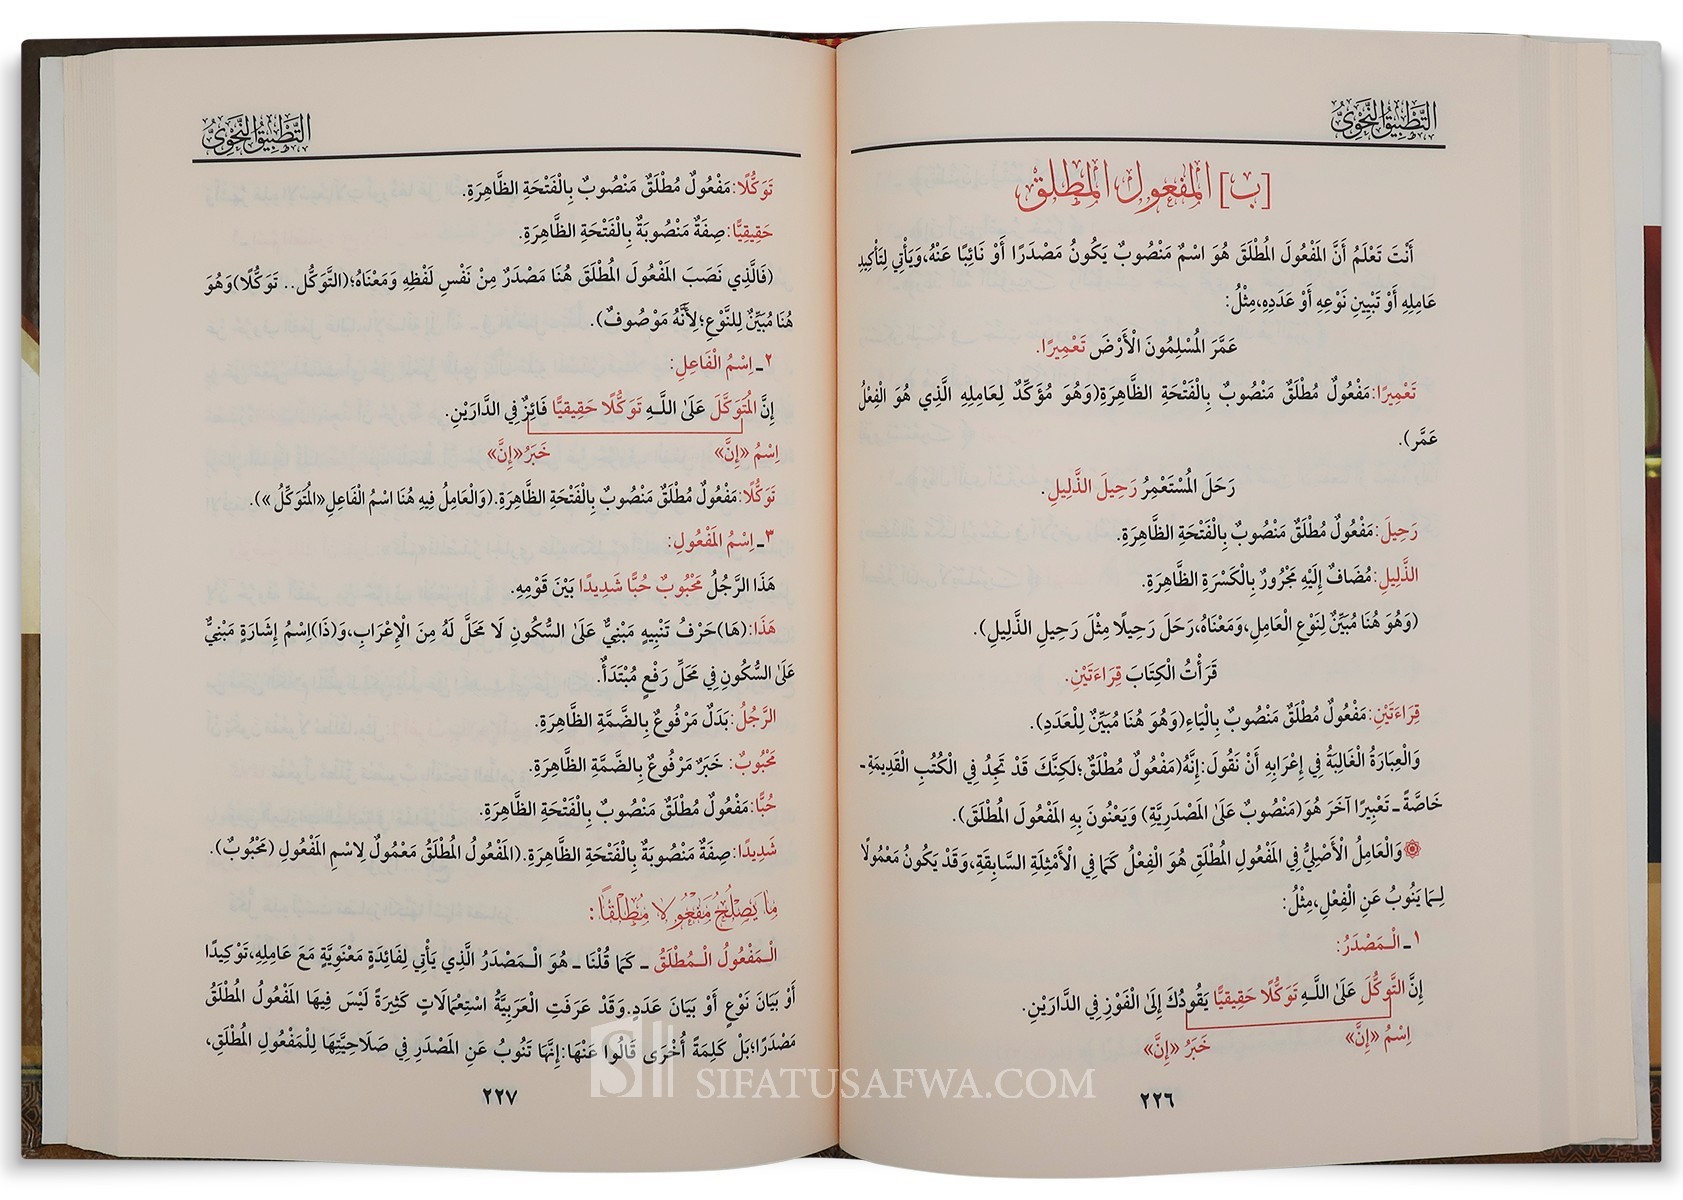 التَّطْبِيقُ النَّحْوِيُّ
[ب] المَفعول المُطلَق
أَنْتَ تَعْلَمُ أَنَّ المَفْعُولَ المُطْلَقَ هُوَ اسْمٌ مَنْصُوبٌ يَكُونُ مَصْدَرًا أَوْ نَائِبًا عَنْهُ،وَيَأْتِي لِتَأْكِيدِ
عَامِلِهِ أَوْ تَبْيِينِ نَوْعِهِ أَوْ عَدَدِهِ،مِثْلُ:
عَمَّرَ المُسْلِمُونَ الْأَرْضَ تَعْمِيرًا.
تَعْمِيرًا:مَفْعُولٌ مُطْلَقٌ مَنْصُوبٌ بِالْفَتْحَةِ الظَّاهِرَةِ(وَهُوَ مُؤَكِّدٌ لِعَامِلِهِ الَّذِي هُوَ الْفِعْلُ
عَمَّر).
رَحَلَ المُسْتَعْمِرُ رَحِيلَ الذَّلِيلِ.
رَحِيلَ:مَفْعُولٌ مُطْلَقٌ مَنْصُوبٌ بِالْفَتْحَةِ الظَّاهِرَةِ.
الذَّلِيلِ:مُضَافٌ إِلَيْهِ مَجْرُورٌ بِالْكَسْرَةِ الظَّاهِرَةِ.
(وَهُوَ هُنَا مُبَيِّنٌ لِنَوْعِ الْعَامِلِ،وَمَعْنَاهُ،رَحَلَ رَحِيلًا مِثْلَ رَحِيلِ الذَّلِيلِ).
قَرَأْتُ الْكِتَابَ قِرَاءَتَيْنِ.
قِرَاءَتَيْنِ:مَفْعُولٌ مُطْلَقٌ مَنْصُوبٌ بِالْيَاءِ(وَهُوَ هُنَا مُبَيِّنٌ لِلْعَدَدِ).
وَالْعِبَارَةُ الْغَالِبَةُ فِي إِعْرَابِهِ أَنْ نَقُولَ:إِنَّهُ(مَفْعُولٌ مُطْلَقٌ؛لَكِنَّكَ قَدْ تَجِدُ فِي الْكُتُبِ الْقَدِيمَةِ-
خَاصَّةً- تَعْبِيرًا آخَرَ هُوَ(مَنْصُوبٌ عَلَى المَصْدَرِيَّةِ) وَيَعْنُونَ بِهِ المَفْعُولَ المُطْلَقَ).
وَالْعَامِلُ الْأَصْلِيُّ فِي المَفْعُولِ المُطْلَقِ هُوَ الْفِعْلُ كَمَا فِي الْأَمْثِلَةِ السَّابِقَةِ،وَقَدْ يَكُونُ مَعْمُولًا
لِـمَا يَنُوبُ عَنِ الْفِعْلِ،مِثْلُ:
١ـ الْـمَصْدَرُ:
إِنَّ التَّوَكُّلَ عَلَى اللَّـهِ تَوَكُّلًا حَقِيقِيًّا يَقُودُكَ إِلَى الْفَوْزِ فِي الدَّارَيْنِ.
اِسْمُ «إِنَّ» خَبَرُ «إِنَّ»
٢٢٦
التَّطْبِيقُ النَّحْوِيُّ
تَوَكُّلًا:مَفْعُولٌ مُطْلَقٌ مَنْصُوبٌ بِالْفَتْحَةِ الظَّاهِرَةِ.
حَقِيقِيًّا:صِفَةٌ مَنْصُوبَةٌ بِالْفَتْحَةِ الظَّاهِرَةِ.
(فَالَّذِي نَصَبَ المَفْعُولَ المُطْلَقَ هُنَا مَصْدَرٌ مِنْ نَفْسِ لَفْظِهِ وَمَعْنَاهُ؛(التَّوَكُّل.. تَوَكُّلًا)وَهُوَ
هُنَا مُبَيِّنٌ لِلنَّوْعِ؛لِأَنَّهُ مَوْصُوفٌ).
٢ـ اِسْمُ الْفَاعِلِ:
إِنَّ المُتَوَكِّلَ عَلَى اللَّـهِ تَوَكُّلًا حَقِيقِيًّا فَائِزٌ فِي الدَّارَيْنِ.
اِسْمُ «إِنَّ» خَبَرُ«إِنَّ»
تَوَكُّلًا:مَفْعُولٌ مُطْلَقٌ مَنْصُوبٌ بِالْفَتْحَةِ الظَّاهِرَةِ.(وَالْعَامِلُ فِيهِ هُنَا اسْمُ الْفَاعِلِ«المُتَوَكِّلُ»).
٣ـ اِسْمُ المَفْعُولِ:
هَذَا الرَّجُلُ مَحْبُوبٌ حُبًّا شَدِيدًا بَيْنَ قَوْمِهِ.
هَذَا:(هَا)حَرْفُ تَنْبِيهٍ مَبْنِيٌّ عَلَى السُّكُونِ لَا مَحَلَّ لَهُ مِنَ الْإِعْرَابِ،وَ(ذَا)اِسْمُ إِشَارَةٍ مَبْنِيٌّ
عَلَى السُّكُونِ فِي مَحَلِّ رَفْعٍ مُبْتَدَأٌ.
الرَّجُلُ:بَدَلٌ مَرْفُوعٌ بِالضَّمَّةِ الظَّاهِرَةِ.
مَحْبُوبٌ: خَبَرٌ مَرْفُوعٌ بِالضَّمَّةِ الظَّاهِرَةِ.
حُبًّا:مَفْعُولٌ مُطْلَقٌ مَنْصُوبٌ بِالْفَتْحَةِ الظَّاهِرَةِ.
شَدِيدًا:صِفَةٌ مَنْصُوبَةٌ بِالْفَتْحَةِ الظَّاهِرَةِ.(المَفْعُولُ المُطْلَقُ مَعْمُولٌ لِاسْمِ المَفْعُولِ (مَحْبُوبٌ).
مَا يَصْلُحُ مَفْعُولًا مُطْلَقًا:
الْـمَفْعُولُ الْـمُطْلَقُ ـ كَمَا قُلْنَا ـ هُوَ الْـمَصْدَرُ الَّذِي يَأْتِي لِفَائِدَةٍ مَعْنَوِيَّةٍ مَعَ عَامِلِهِ،تَوْكِيدًا
أَوْ بَيَانَ نَوْعٍ أَوْ بَيَانَ عَدَدٍ.وَقَدْ عَرَفَتِ الْعَرَبِيَّةُ اسْتِعْمَالَاتٍ كَثِيرَةً لَيْسَ فِيهَا المَفْعُولُ المُطْلَقُ
مَصْدَرًا؛بَلْ كَلِمَةً أُخْرَى قَالُوا عَنْهَا:إِنَّهَا تَنُوبُ عَنِ المَصْدَرِ فِي صَلَاحِيَّتِهَا لِلْمَفْعُولِ المُطْلَقِ،
٢٢٧
SIFATUSAFWA.COM